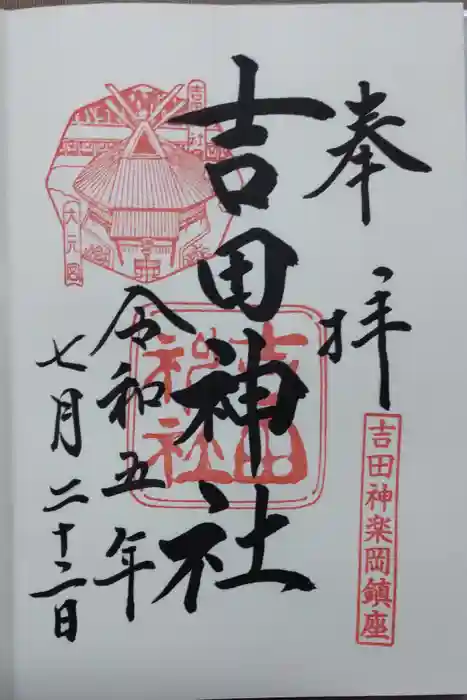 奉拝
吉田神楽岡鎮座
吉田神社
吉田神社
令和五年
七月二十二日
吉田神社
大元宮